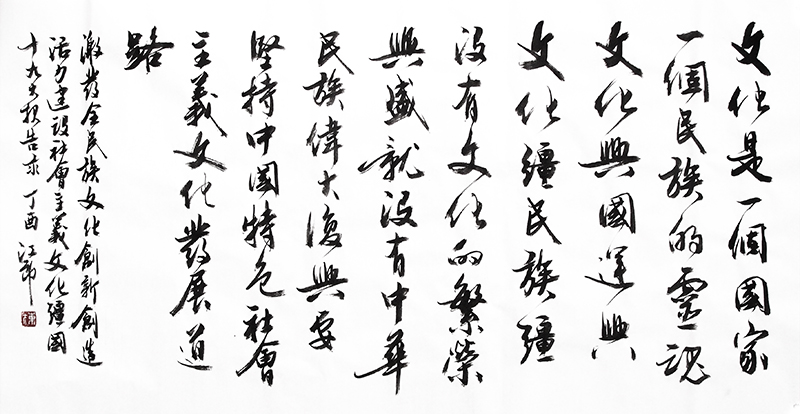 文化是一個國家
一個民族的靈魂
文化興國運興
文化疆民族疆
沒有文化的繁榮
興盛就沒有中華
民族偉大復興要
堅持中國特色社會
主義文化發展道
路
激發全民族文化創新創造
活力建設社會主義文化疆國
十九大報告求 丁酉 江郎